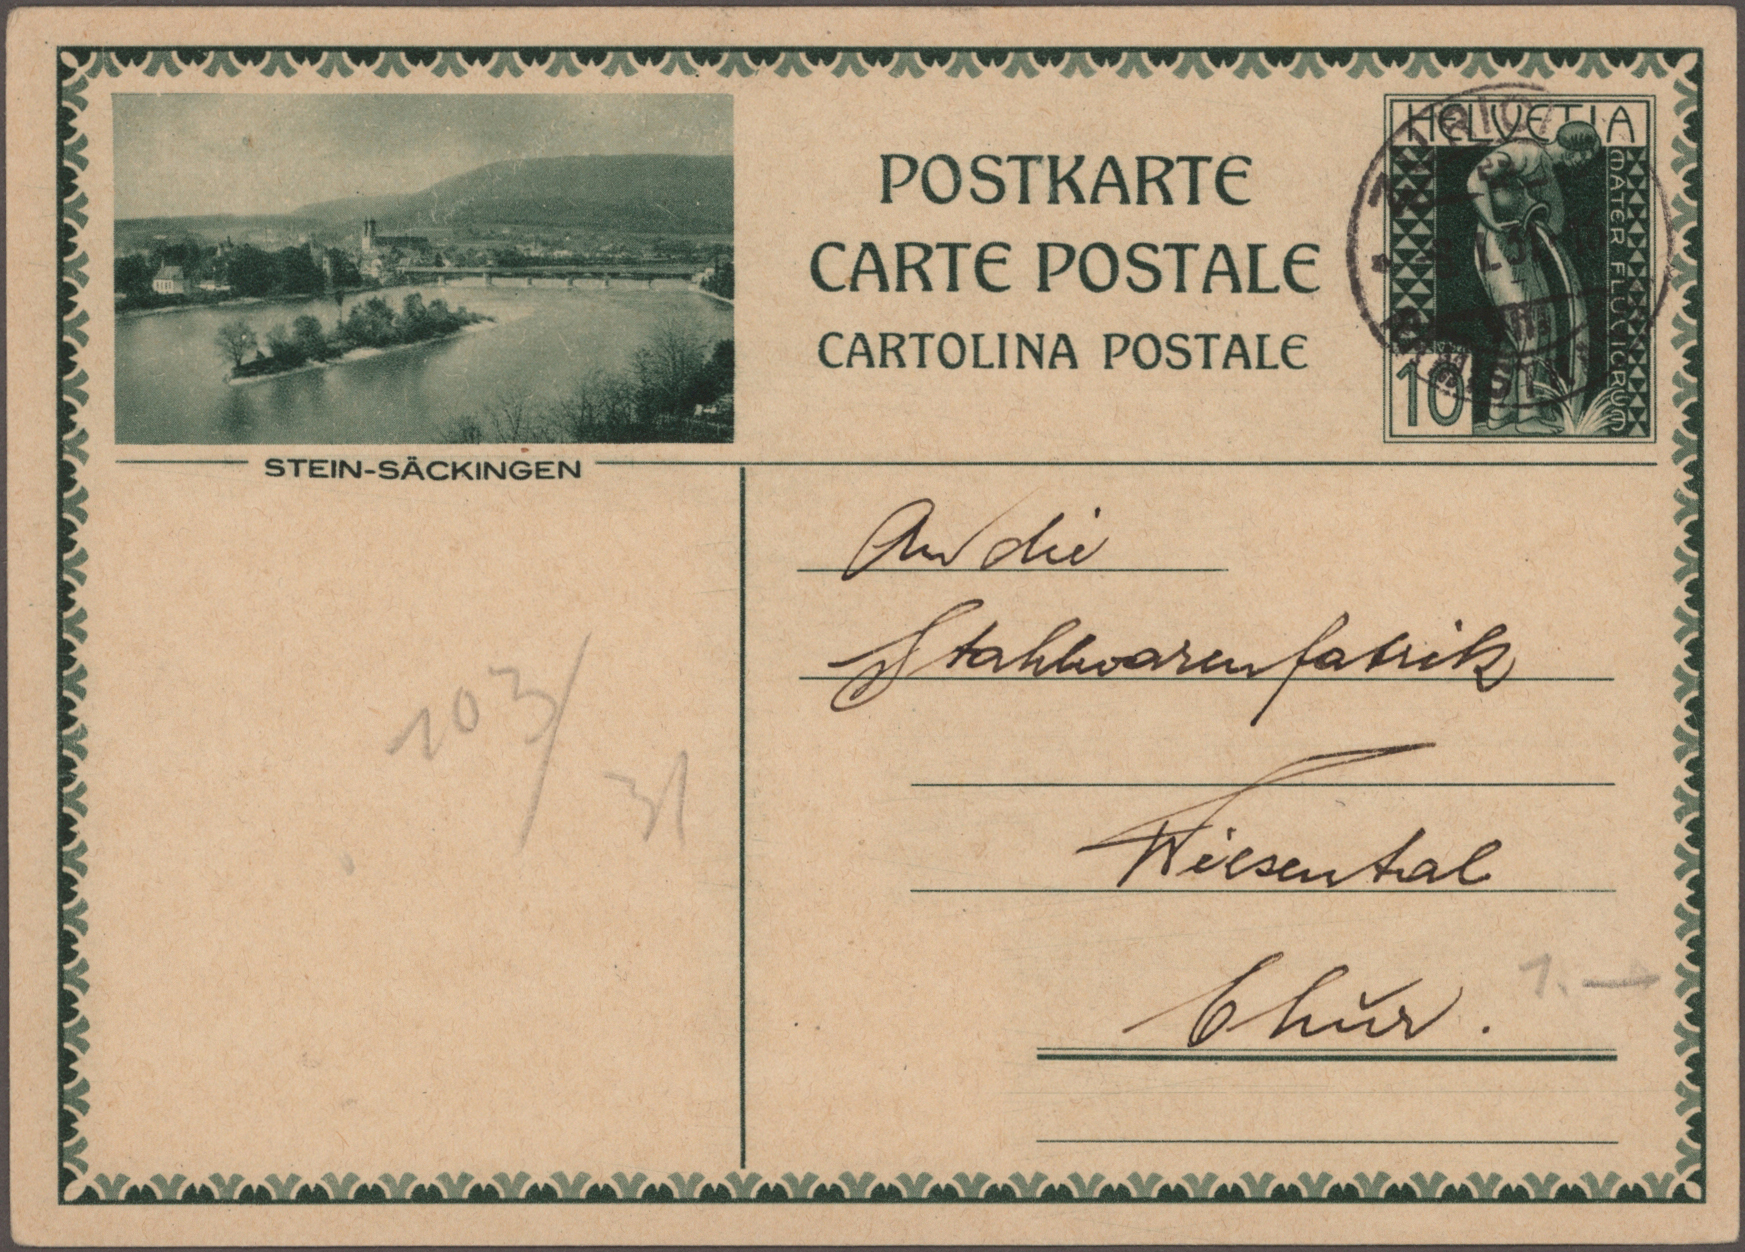 POSTKARTE
CARTE POSTALE
CARTOLINA POSTALE
HELVETIA
MATER FLUVIORUM
10
STEIN-SÄCKINGEN
An die
Stahlwarenfabrik
Wiesental
Chur.
103/
31
1.—